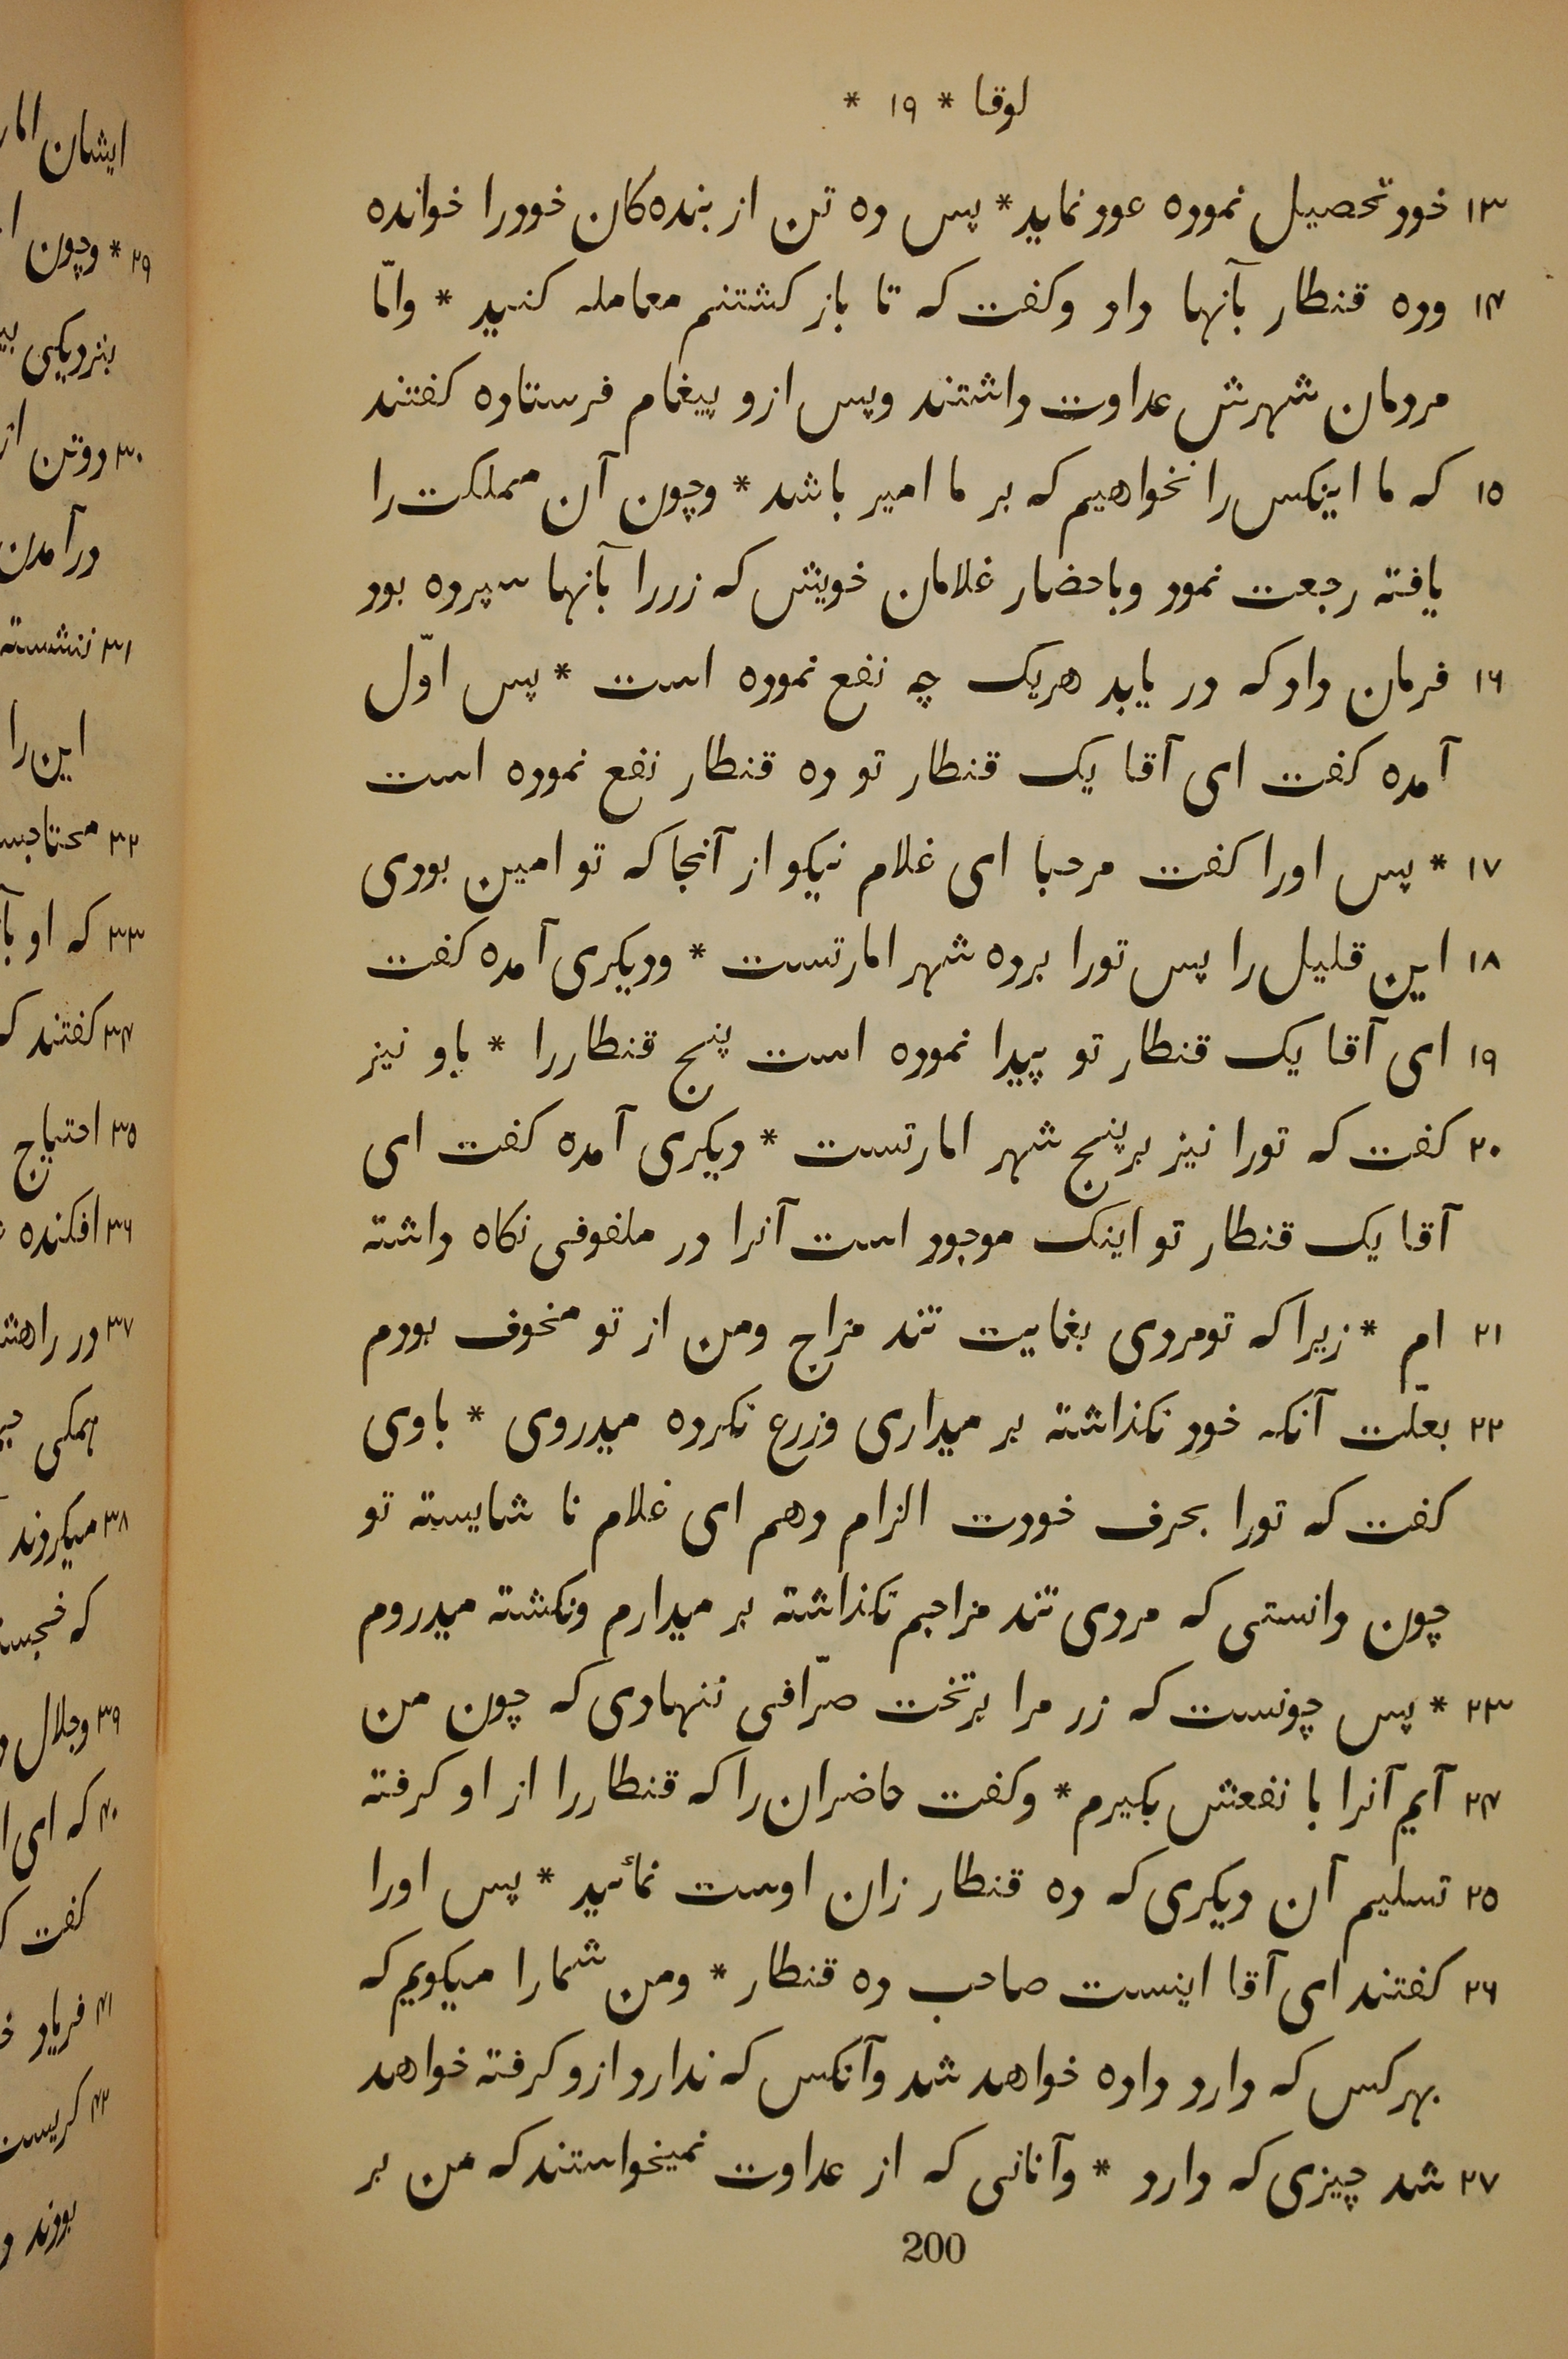 لوقا * ١٩ *
١٣ خود تحصیل نموده عود نماید * پس ده تن از بنده‌کان خودرا خوانده
١٤ وده قنطار بآنها داد وکفت که تا باز کشتنم معامله کنید * وامّا
مردمان شهرش عداوت داشتند وپس ازو پیغام فرستاده کفتند
١٥ که ما اینکس را نخواهیم که بر ما امیر باشد * وچون آن مملکت را
یافته رجعت نمود وباحضار غلامان خویش که زررا بآنها سپرده بود
١٦ فرمان داد که در یابد هریک چه نفع نموده است * پس اوّل
آمده کفت ای آقا یک قنطار تو ده قنطار نفع نموده است
١٧ * پس اورا کفت مرحبا ای غلام نیکو از آنجا که تو امین بودی
١٨ این قلیل را پس تورا برده شهر امارتست * ودیکری آمده کفت
١٩ ای آقا یک قنطار تو پیدا نموده است پنج قنطاررا * باو نیز
٢٠ کفت که تورا نیز برپنج شهر امارتست * دیکری آمده کفت ای
آقا یک قنطار تو اینک موجود است آنرا در ملفوفی نکاه داشته
٢١ ام * زیرا که تومردی بغایت تند مزاج ومن از تو مخوف بودم
٢٢ بعلّت آنکه خود نکذاشته بر میداری وزرع نکرده میدروی * باوی
کفت که تورا بحرف خودت الزام دهم ای غلام نا شایسته تو
چون دانستی که مردی تند مزاجم نکذاشته بر میدارم ونکشته میدروم
٢٣ * پس چونست که زر مرا برتخت صرّافی ننهادی که چون من
٢٤ آیم آنرا با نفعش بکیرم * وکفت حاضران را که قنطاررا از او کرفته
٢٥ تسلیم آن دیکری که ده قنطار زان اوست نمائید * پس اورا
٢٦ کفتند ای آقا اینست صاحب ده قنطار * ومن شمارا میکویم که
بهرکس که دارد داده خواهد شد وآنکس که ندارد ازو کرفته خواهد
٢٧ شد چیزی که دارد * وآنانی که از عداوت نمیخواستند که من بر
200
ایشان
٢٩ * وچون
بنزدیکی
٣٠ دوتن
درآمدن
٣١ ننشسته
این را
٣٢
٣٣ که او
٣٤ کفتند
٣٥ احتیاج
٣٦ افکنده
٣٧ در
همکی
٣٨ میکردند
که
٣٩ وجلال
٤٠ که ای
کفت
٤١ فریاد
٤٢ کریست
بودند